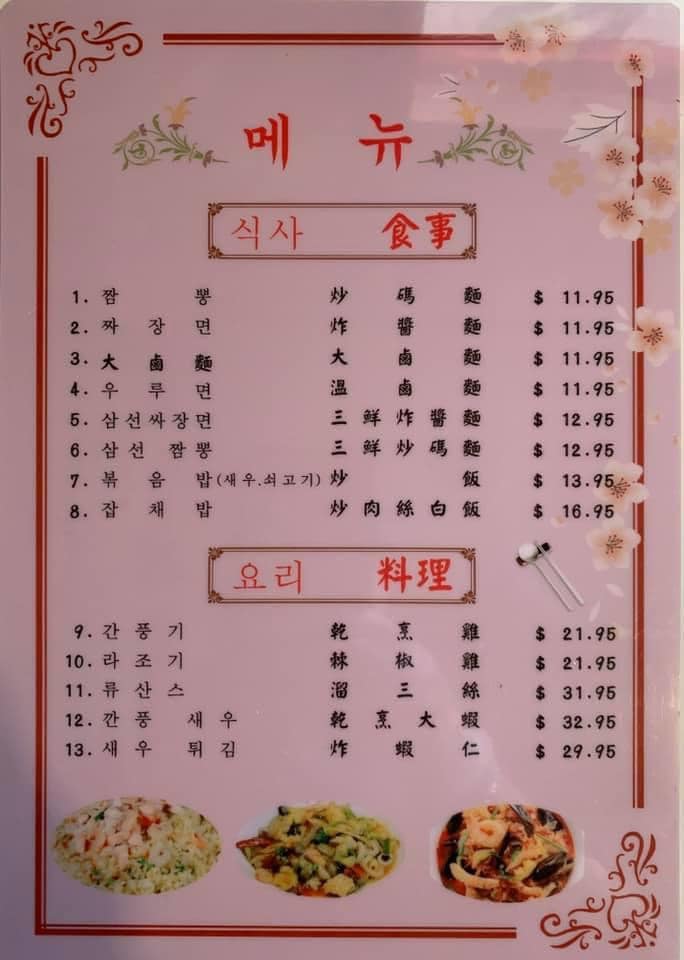 메뉴
식사 食事
1. 짬뽕 炒碼麵 $ 11.95
2. 짜장면 炸醬麵 $ 11.95
3. 大鹵麵 大鹵麵 $ 11.95
4. 우루면 溫鹵麵 $ 11.95
5. 삼선싸장면 三鮮炸醬麵 $ 12.95
6. 삼선 짬뽕 三鮮炒碼麵 $ 12.95
7. 볶음밥(새우.쇠고기) 炒飯 $ 13.95
8. 잡채밥 炒肉絲白飯 $ 16.95
요리 料理
9. 간풍기 乾烹雞 $ 21.95
10. 라조기 棘椒雞 $ 21.95
11. 류산스 溜三絲 $ 31.95
12. 깐풍 새우 乾烹大蝦 $ 32.95
13. 새우 튀김 炸蝦仁 $ 29.95